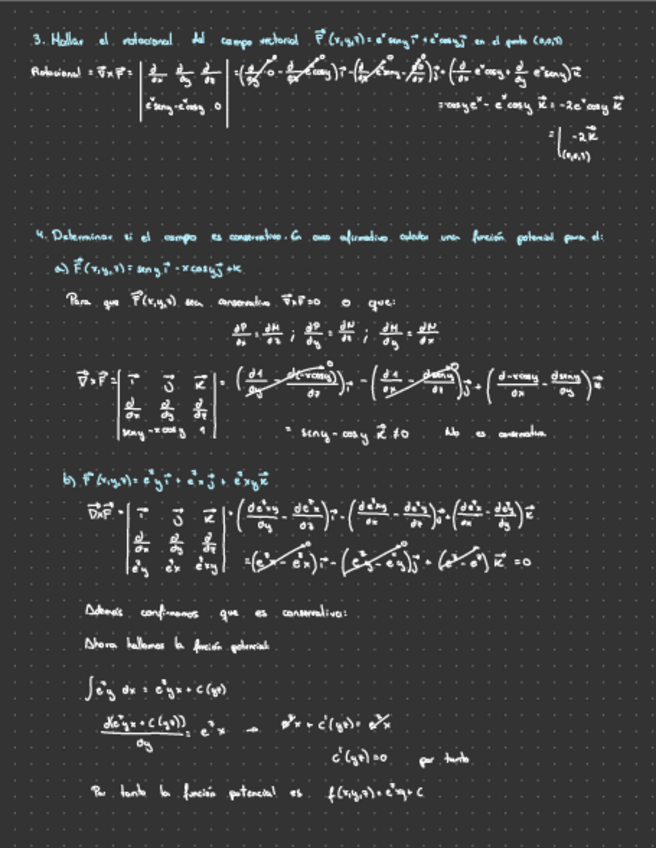 3. Hallar el rotacional del campo vectorial F⃗(x,y,z) = eˣ seny i⃗ + eˣ cosy j⃗ en el punto (0,0,3)
Rotacional = ∇⃗×F⃗ = | ∂/∂x ∂/∂y ∂/∂z | eˣseny -eˣcosy 0 |
= cosy eˣ - eˣ cosy k⃗ = -2eˣ cosy k⃗
= | -2k⃗
(0,0,3)
4. Determinar si el campo es conservativo. En caso afirmativo calcular una función potencial para el:
a) F⃗(x,y,z) = seny i⃗ - x cosy j⃗ + k
Para que F⃗(x,y,z) sea conservativo ∇⃗×F⃗=0 o que:
∂P/∂x = ∂M/∂z ; ∂P/∂y = ∂N/∂z ; ∂M/∂y = ∂N/∂x
∇⃗×F⃗ = | i⃗ j⃗ k⃗ | ∂/∂x ∂/∂y ∂/∂z | seny -xcosy 1 | = (∂1/∂y - ∂(-xcosy)/∂z) i⃗ - (∂1/∂x - ∂seny/∂z) j⃗ + (∂-xcosy/∂x - ∂seny/∂y) k⃗
= seny - cosy k⃗ ≠0 No es conservativo
b) F⃗(x,y,z) = eᶻy i⃗ + eᶻx j⃗ + eᶻxy k⃗
∇⃗×F⃗ = | i⃗ j⃗ k⃗ | ∂/∂x ∂/∂y ∂/∂z | eᶻy eᶻx eᶻxy | = (∂eᶻxy/∂y - ∂eᶻx/∂z) i⃗ - (∂eᶻxy/∂x - ∂eᶻy/∂z) j⃗ + (∂eᶻx/∂x - ∂eᶻy/∂y) k⃗
= (eᶻx - eᶻx) i⃗ - (eᶻy - eᶻy) j⃗ + (eᶻ - eᶻ) k⃗ = 0
Además confirmamos que es conservativo:
Ahora hallamos la función potencial
∫eᶻy dx = eᶻyx + C(yz)
∂(eᶻyx + C(yz))/∂y = eᶻx → eᶻx + C'(yz) = eᶻx
C'(yz) = 0 por tanto
Por tanto la función potencial es f(x,y,z) = eᶻxy + C